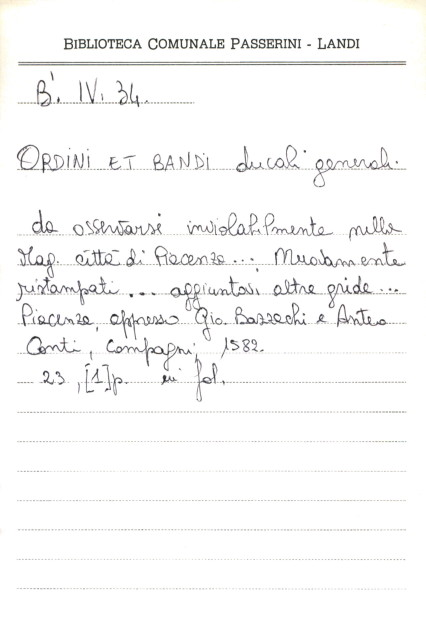 BIBLIOTECA COMUNALE PASSERINI - LANDI
B'. IV. 34.
ORDINI ET BANDI ducali generali.
da osservarsi inviolabilmente nella
Mag. città di Piacenza... Nuovamente
ristampati... aggiuntovi altre gride...
Piacenza, appresso Gio. Bazachi e Anteo
Conti, Compagni, 1582.
23, [1] p. in fol.